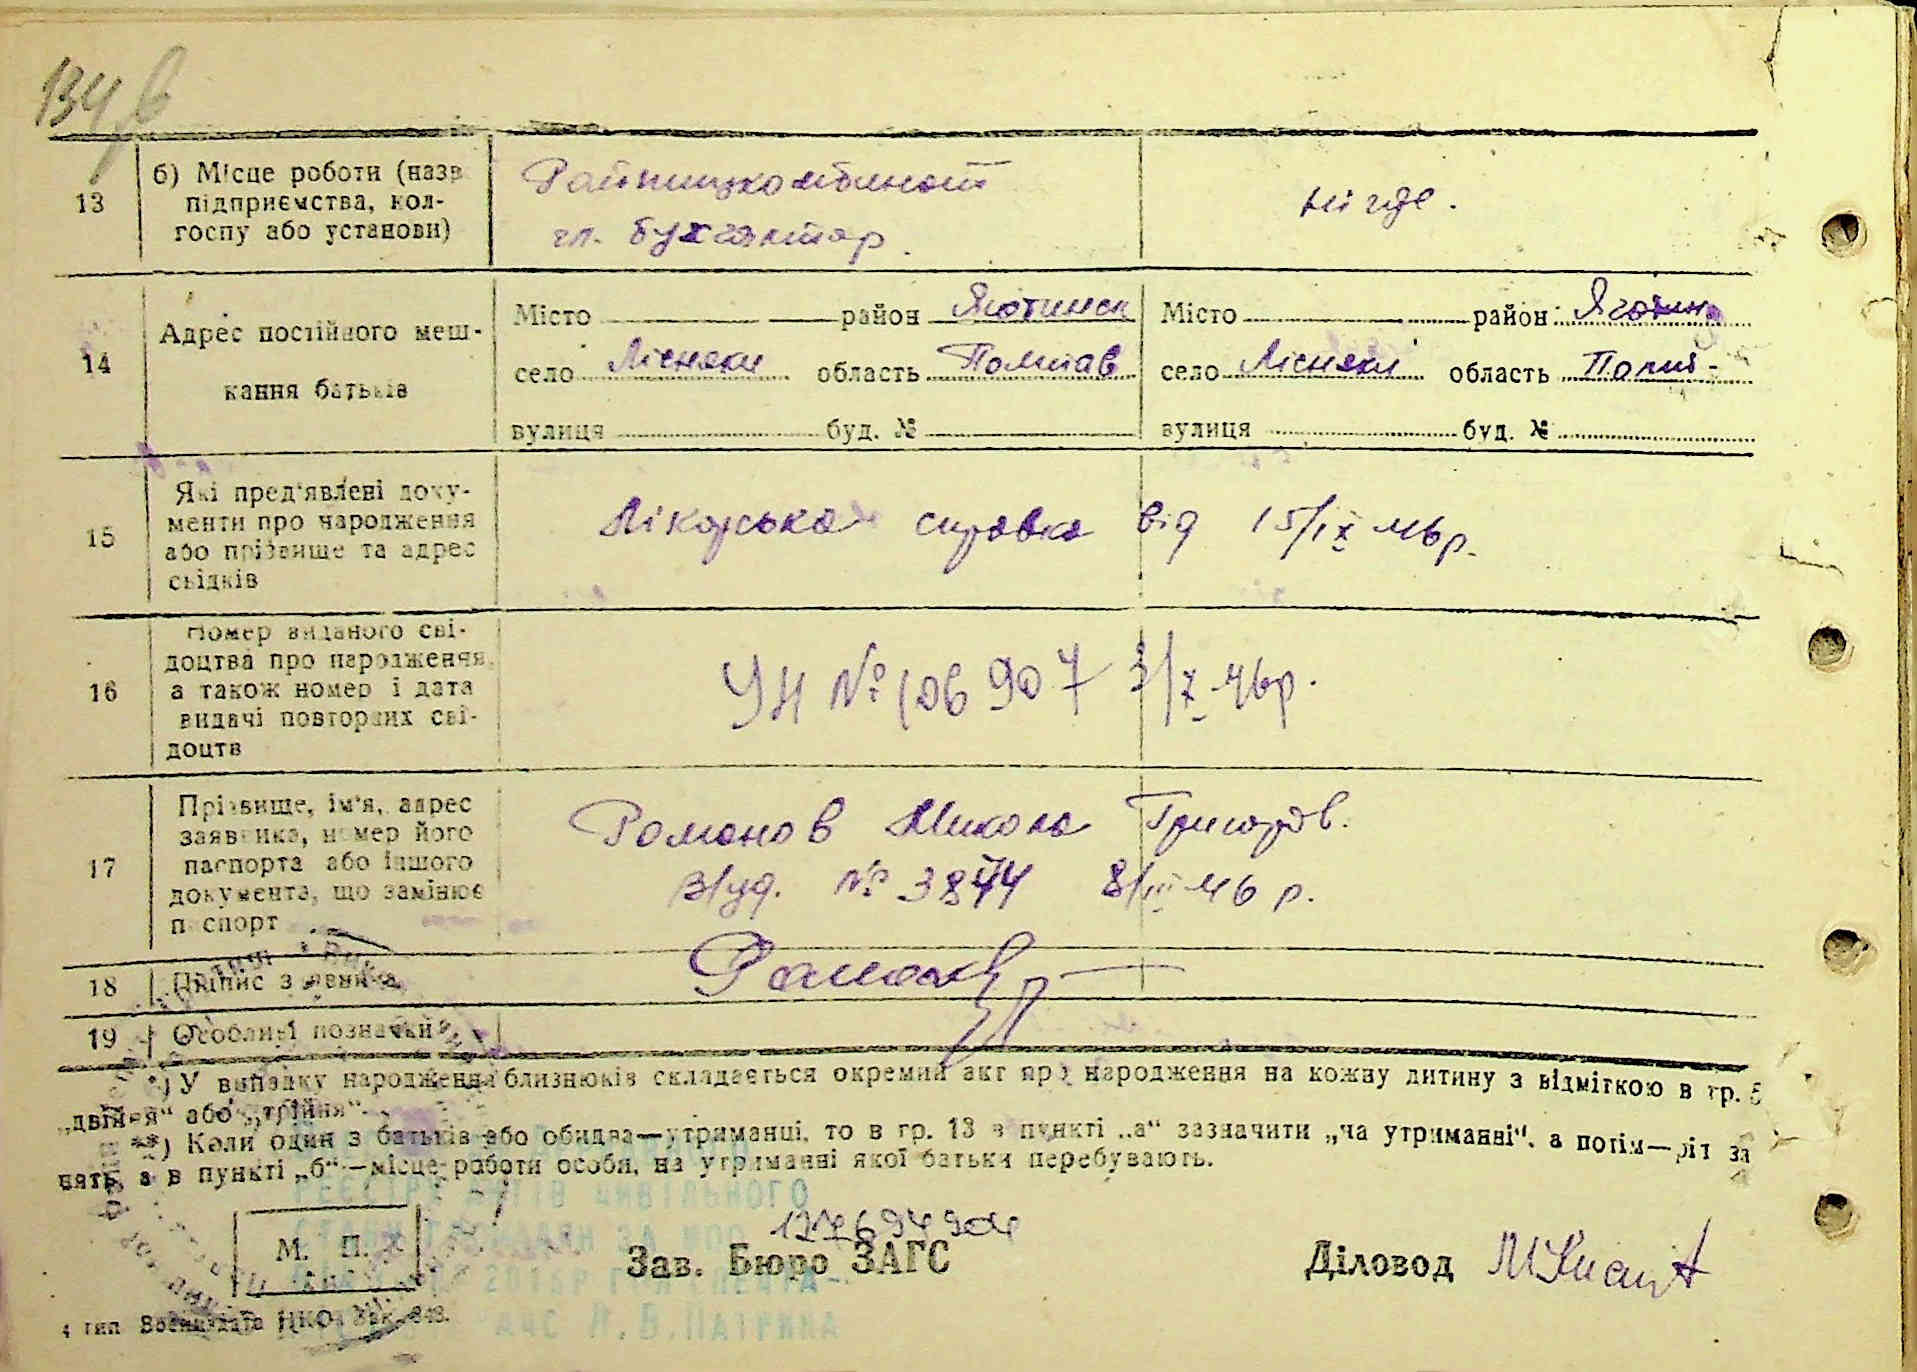 134
13
б) Місце роботи (назв
підприємства, кол-
госпу або установи)
Райпищкомбинат
гл. бухгалтер.
нигде.
14
Адрес постійного меш-
кання батьків
Місто район Яготинск
село Лісняки область Полтав
вулиця буд. №
Місто район Яготин
село Лісняки область Полт-
вулиця буд. №
15
Які пред'явлені доку-
менти про народження
або прізвище та адрес
свідків
Лікарська справка від 15/IX 46р.
16
Номер виданого сві-
доцтва про народження,
а також номер і дата
видачі повторних сві-
доцтв
УН № 106907 3/X 46р.
17
Прізвище, ім'я, адрес
заявника, номер його
паспорта або іншого
документа, що замінює
паспорт
Романов Микола Григоров.
№ 3844 46 р.
18
Підпис заявника
19
Особливі позначки
*) У випадку народження близнюків складається окремий акт про народження на кожну дитину з відміткою в гр. 5
„двійня“ або „трійня“.
**) Коли один з батьків або обидва—утриманці, то в гр. 13 в пункті „а“ зазначити „на утриманні“, а потім—рід за
нять, а в пункті „б“—місце роботи особи, на утриманні якої батьки перебувають.
М. П.
Зав. Бюро ЗАГС
Діловод